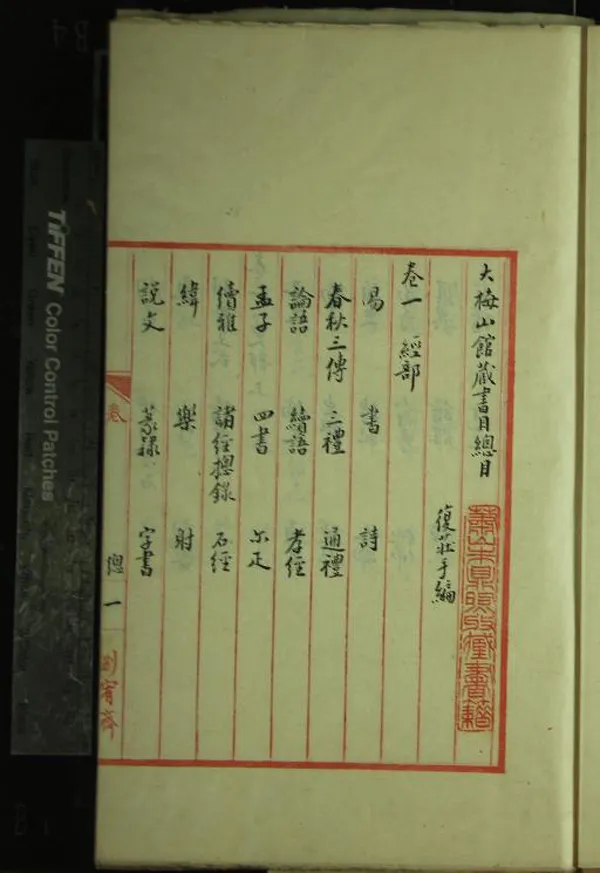 大梅山館藏書目總目
復莊手編
卷一 經部
易 書 詩
春秋三傳 三禮 通禮
論語 續語 孝經
孟子 四書 尒疋
續雅 諸經㧾錄 石經
緯 樂 財
說文 篆隸 字書
卷
總 一
蕭山朱鼎煦收藏書籍
TiFFEN Color Control Patches